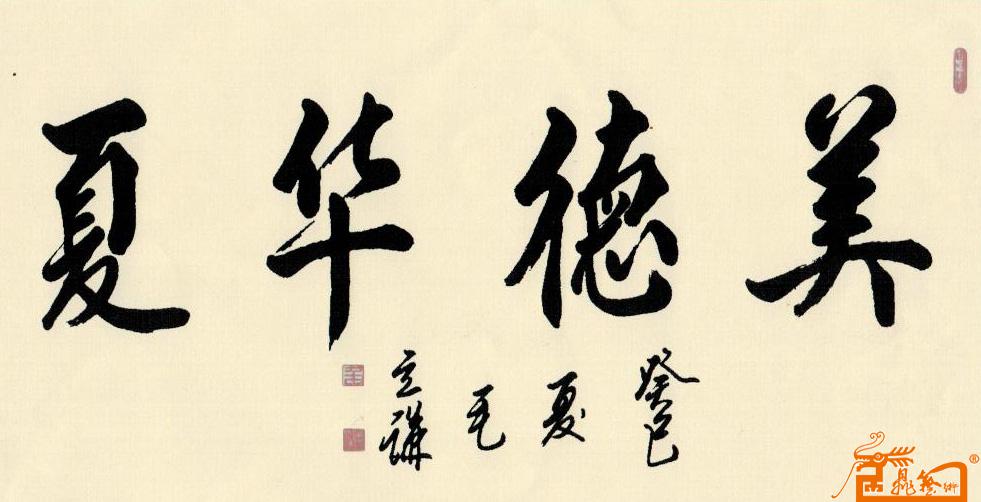 美德华夏
癸巳
夏
毛
立讲